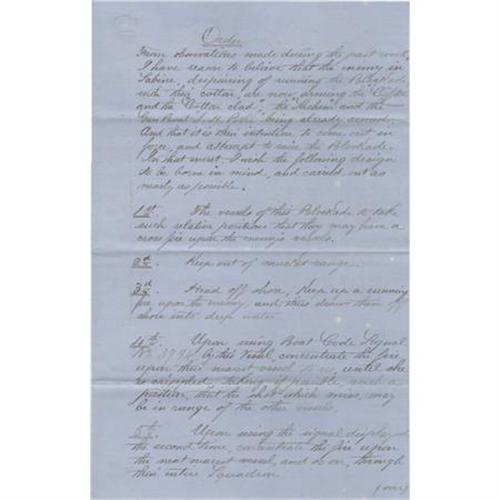 Order
From observations made during the past week,
I have reason to believe that the enemy in
Sabine, despairing of running the Blockade
with their cotton, are now arming the
and the "Cotton clad", the "Sachem" and the
Gun Boat being already armed,
And that it is their intention to come out in
force, and attempt to raise the Blockade.
In that event I wish the following design
to be borne in mind, and carried out as
nearly as possible.
1st The vessels of this Blockade to take
such relative positions that they may have a
cross fire upon the enemy's vessels.
2d Keep out of musket range.
3d Head off shore, Keep up a running
fire upon the enemy, and thus draw them off
shore into deep water
4th. Upon using Boat Code Signal
No. by this Vessel, concentrate the fire
upon their nearest vessel until she
is crippled, taking if possible, such a
position, that the shot which miss, may
be in range of the other vessels.
5th. Upon using the signal displayed
the second time, concentrate the fire upon
the next nearest vessel, and so on, through
their entire Squadron.
(over)